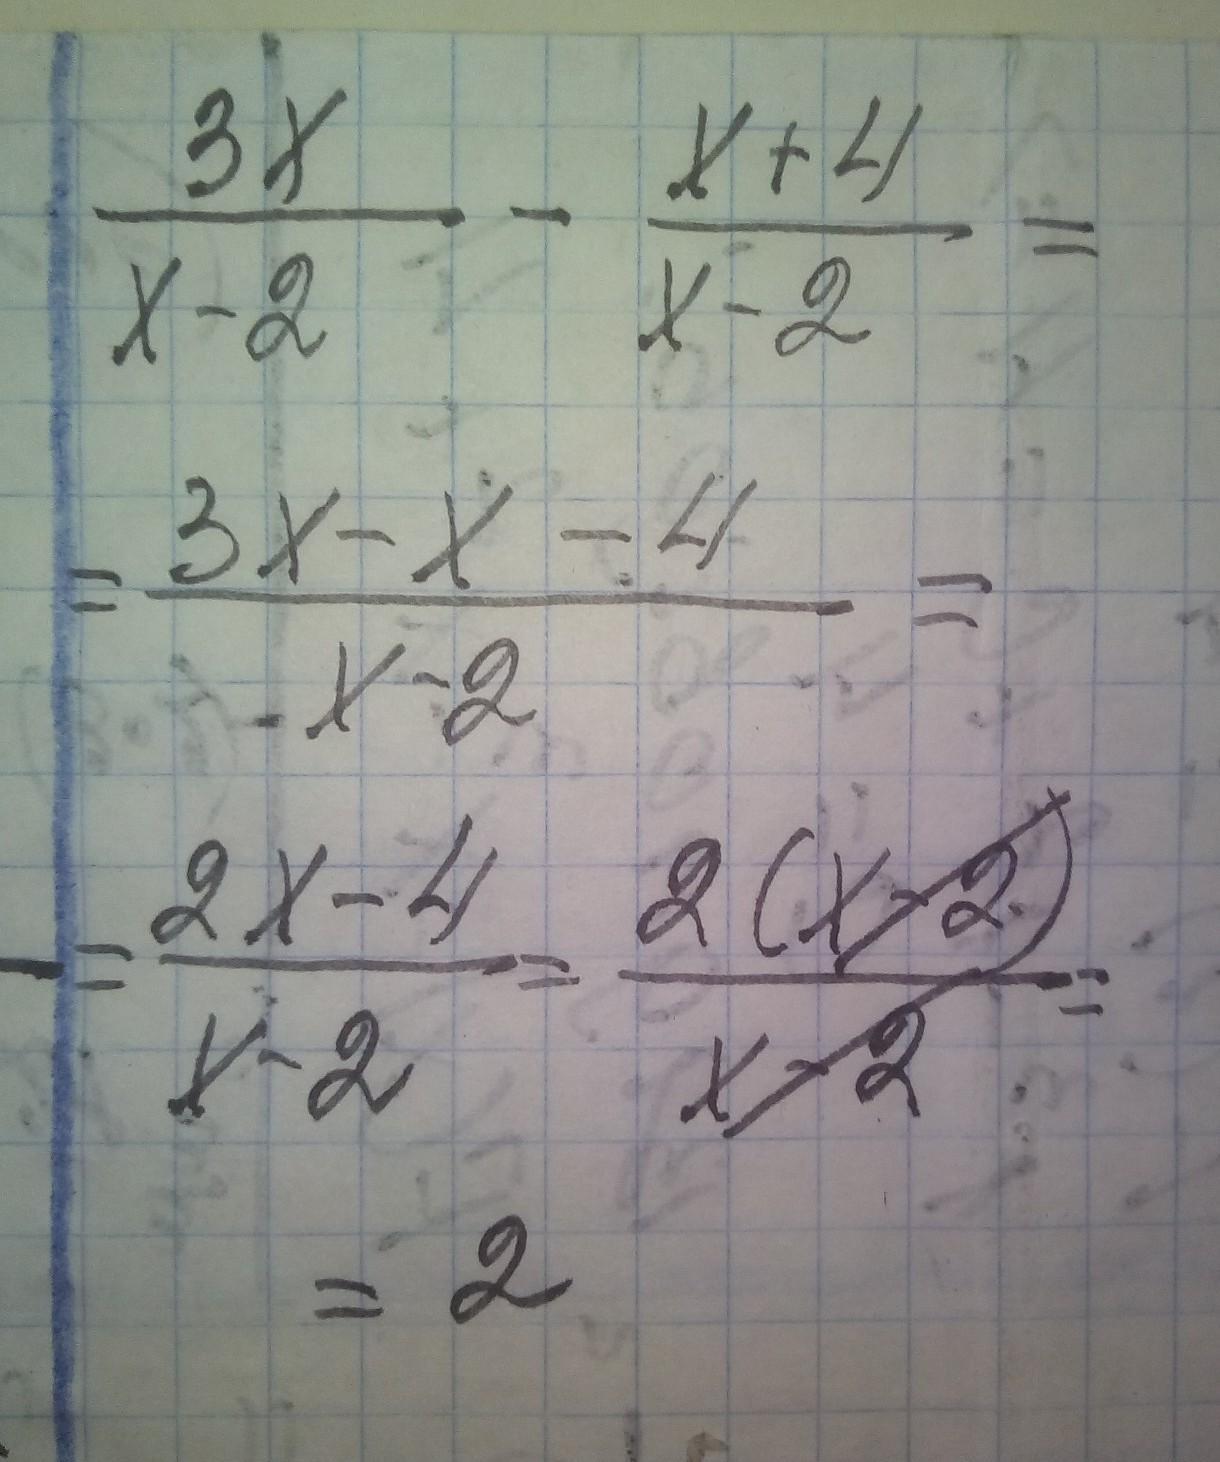 3x/(x-2) - (x+4)/(x-2) =
= (3x-x-4)/(x-2) =
= (2x-4)/(x-2) = 2(x-2)/(x-2) =
= 2